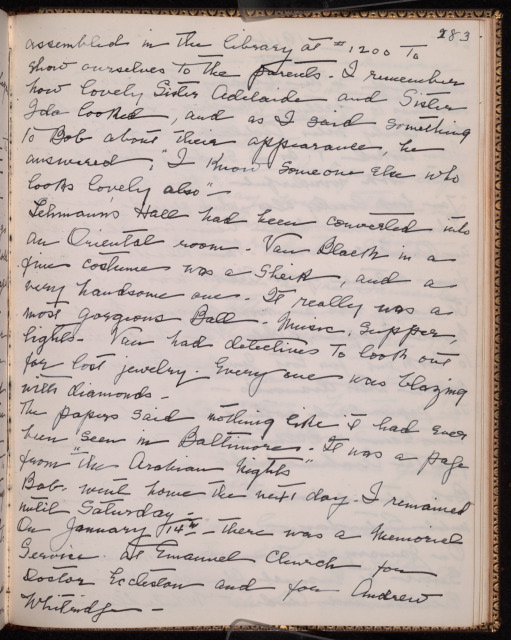 283
assembled in the library at #1200 to
show ourselves to the parents. I remember
how lovely Sister Adelaide and Sister
Ida looked, and as I said something
to Bob about their appearance, he
answered, "I know someone else who
looks lovely also" -
Lehmann's Hall had been converted into
an Oriental room - Van Black in a
fine costume was a Sheik, and a
very handsome one. It really was a
most gorgeous Ball - Music, supper,
lights - Van had detectives to look out
for lost jewelry. Every one was blazing
with diamonds -
The papers said nothing like it had ever
been seen in Baltimore - It was a page
from "the Arabian Nights"
Bob went home the next day. I remained
until Saturday -
On January 14th - there was a Memorial
Service at Emanuel Church for
Doctor Eccleston and for Andrew
Whitridge -